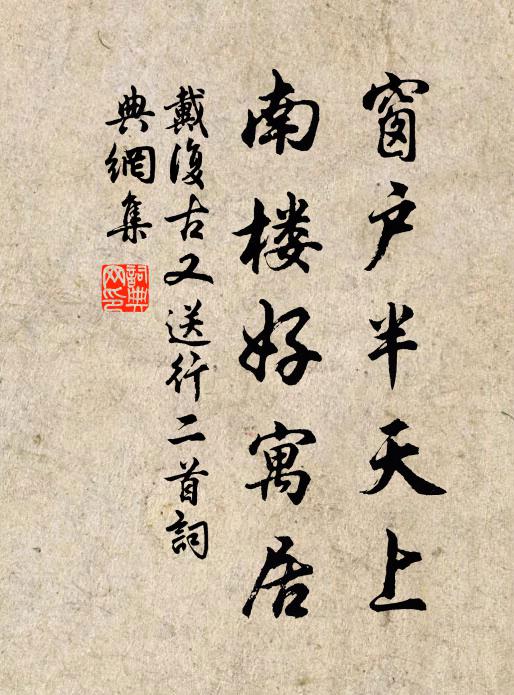 窗户半天上
南楼好寓居
戴復古又送行二首詞
典網集
詞典網印